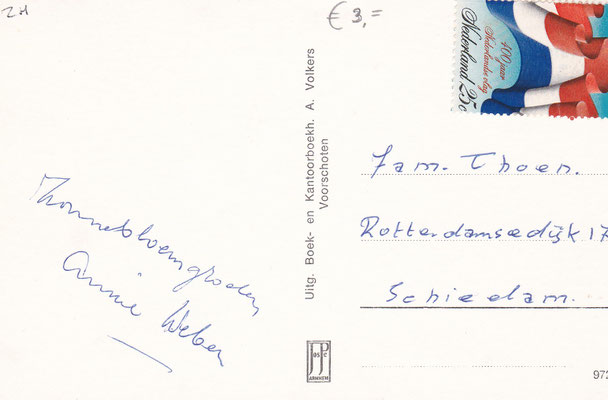 ZH
€ 3,=
400 jaar
Nederlandse vlag
Nederland 25c
Uitg. Boek- en Kantoorboekh. A. Volkers
Voorschoten
Zonnebloemgroeten
Annie Weber
Fam. Thoen.
Rotterdamsedijk 17
Schiedam.
JosPé
ARNHEM
972